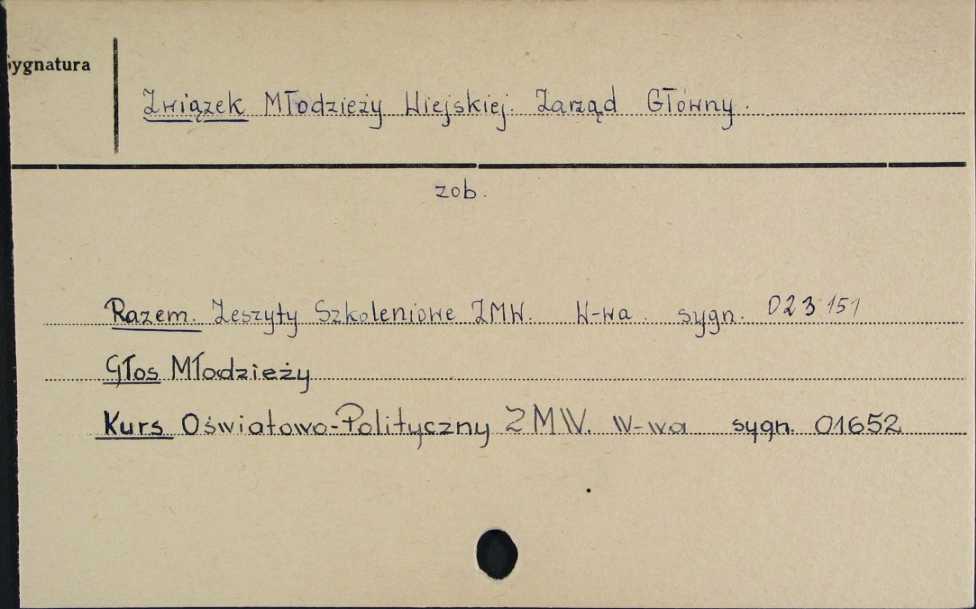 Sygnatura
Związek Młodzieży Wiejskiej. Zarząd Główny.
zob.
Razem. Zeszyty Szkoleniowe ZMW. W-wa. sygn. 023151
Głos Młodzieży
Kurs Oświatowo-Polityczny ZMW. W-wa sygn. 01652